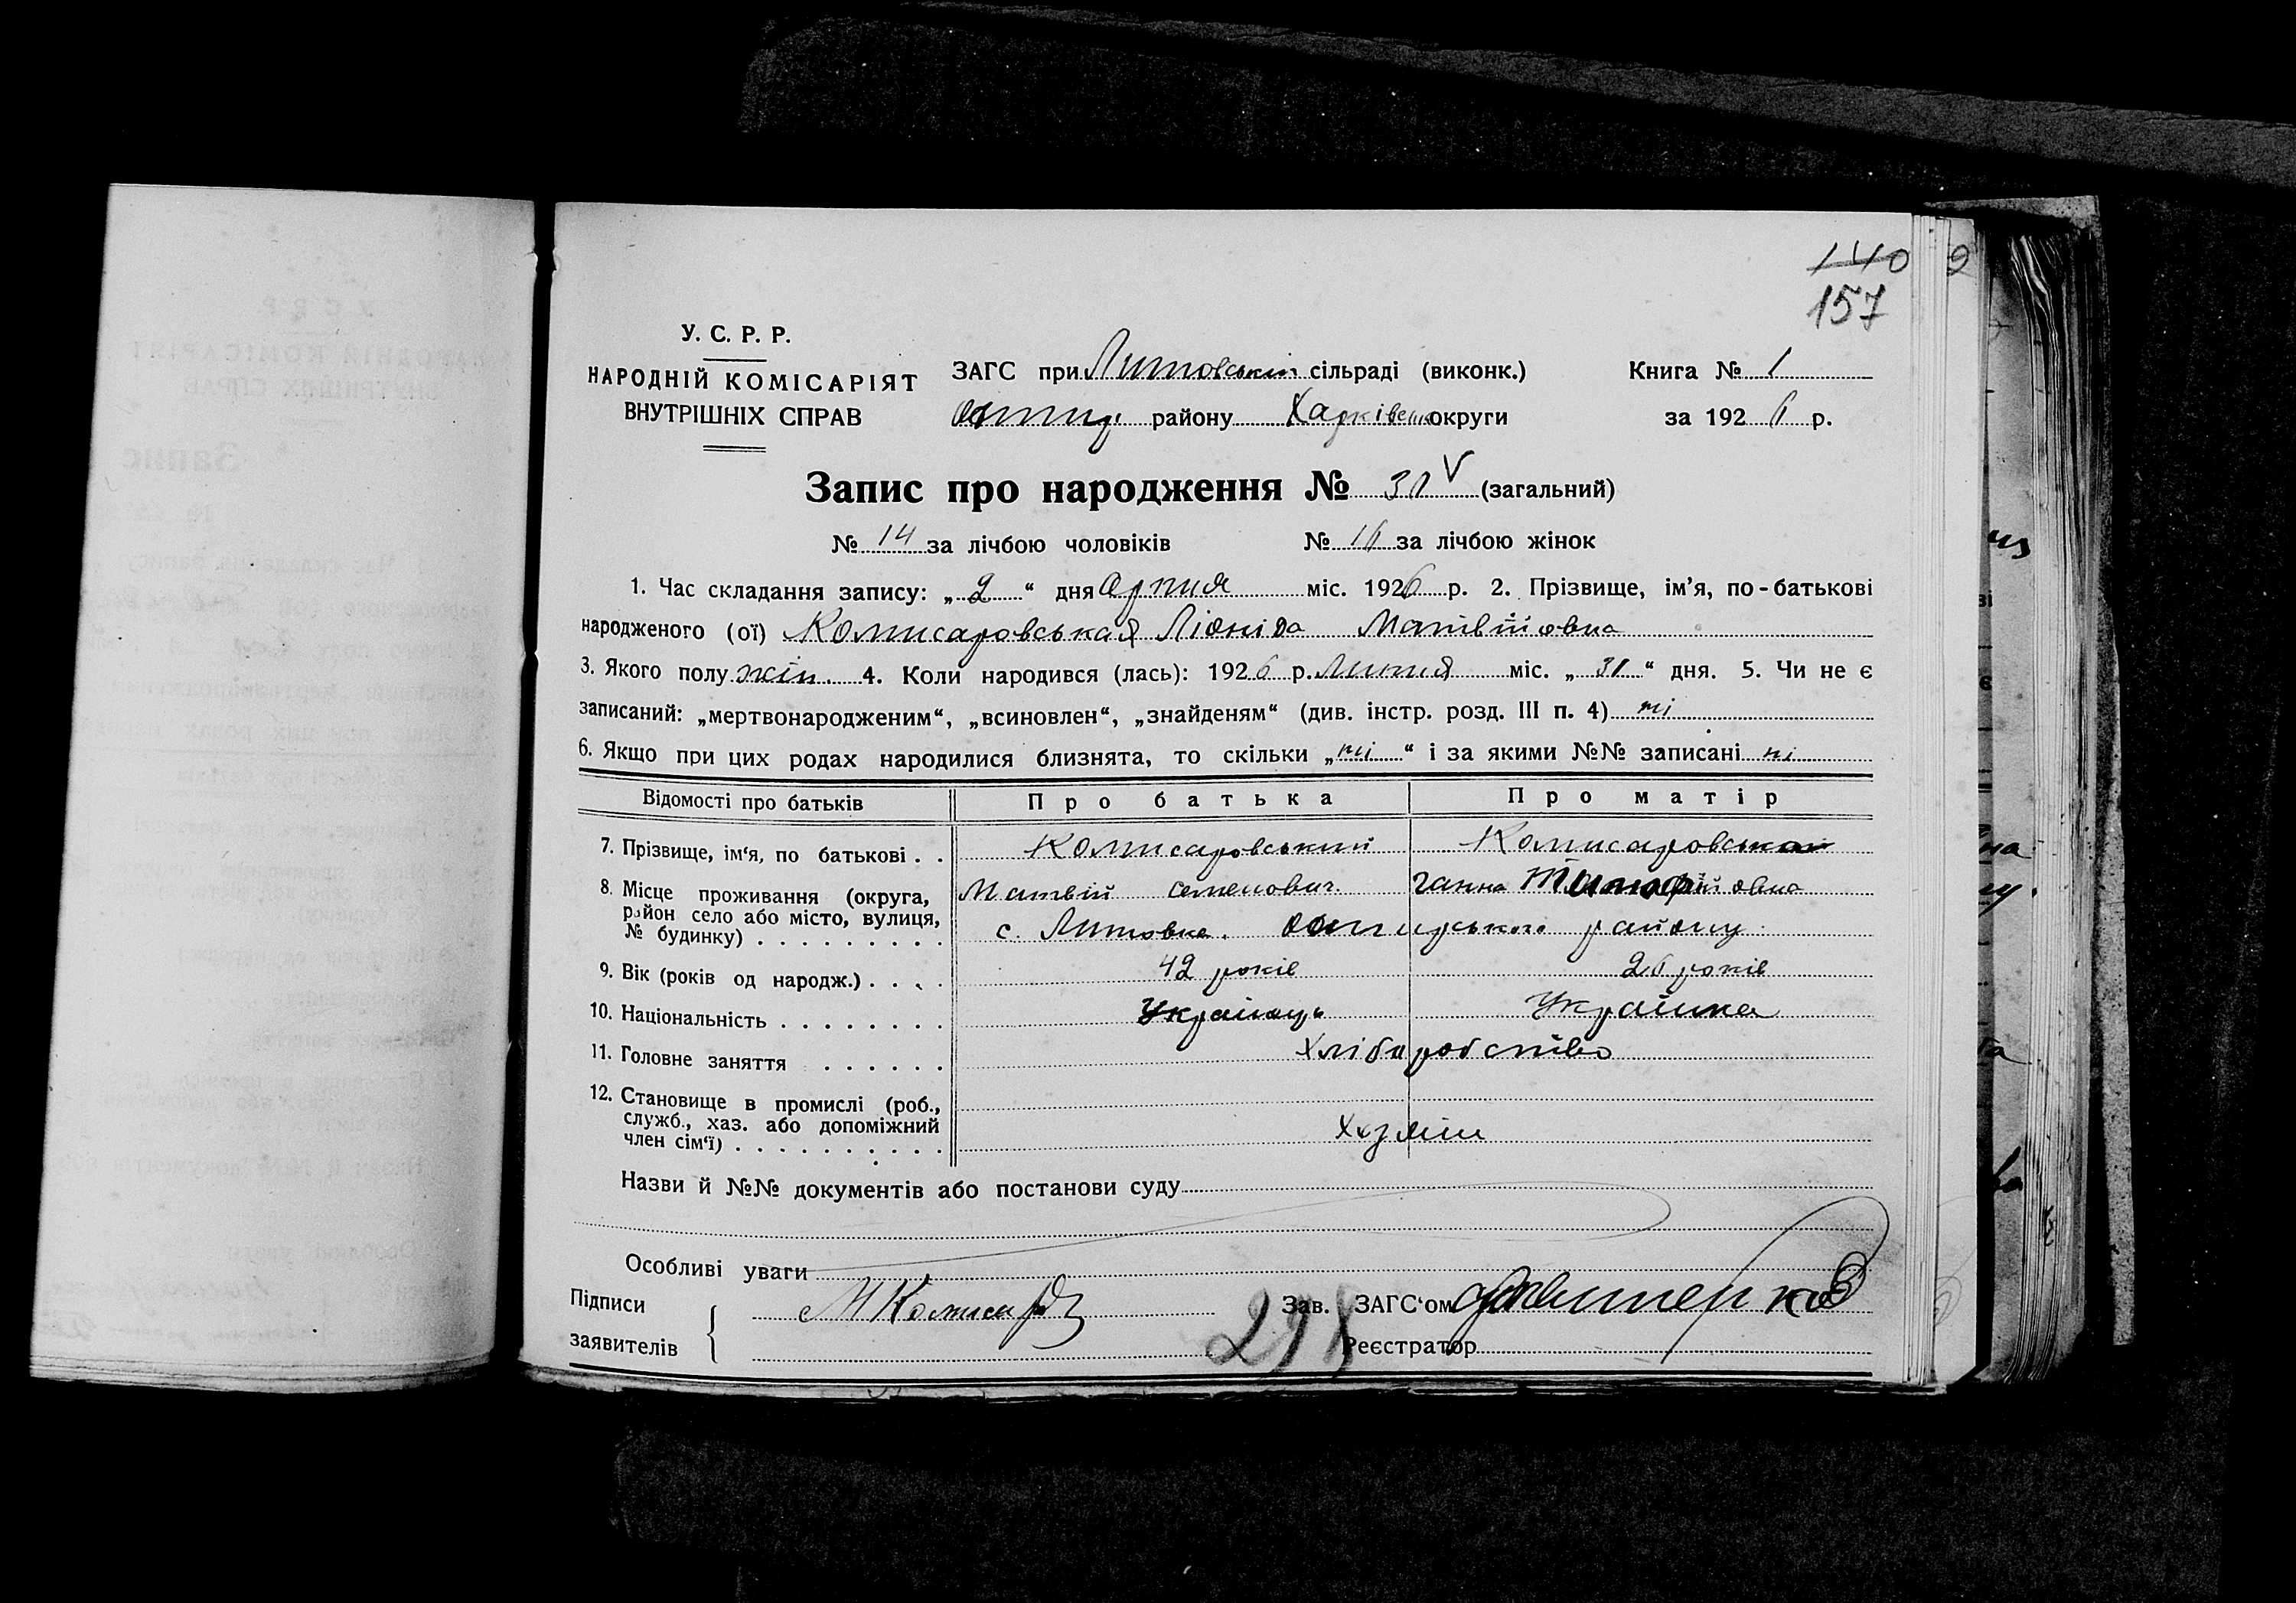 140
157
У. С. Р. Р.
НАРОДНІЙ КОМІСАРІЯТ
ВНУТРІШНІХ СПРАВ
ЗАГС при Литовський сільраді (виконк.)
району Харківськ округи
Книга № 1
за 1926 р.
Запис про народження № (загальний)
№ 14 за лічбою чоловіків № 16 за лічбою жінок
1. Час складання запису: „ 2 “ дня міс. 1926 р. 2. Прізвище, ім'я, по-батькові
народженого (ої) Комисаровськая Ліоніда Матвійовна
3. Якого полу жін. 4. Коли народився (лась): 1926 р. Липня міс. „ 31 “ дня. 5. Чи не є
записаний: „мертвонародженим“, „всиновлен“, „знайденям“ (див. інстр. розд. III п. 4) ні
6. Якщо при цих родах народилися близнята, то скільки „ ні “ і за якими №№ записані ні
Відомості про батьків Про батька Про матір
7. Прізвище, ім'я, по батькові . . Комисаровський Комисаровськая
8. Місце проживання (округа, Матвій Семенович Ганна
район село або місто, вулиця, с. Литовка. району
№ будинку) . . . . . . . . .
9. Вік (років од народж.) . . . . 42 років 26 років
10. Національність . . . . . . . . Українець Українка
11. Головне заняття . . . . . . Хліборобство
12. Становище в промислі (роб.,
служб., хаз. або допоміжний
член сім'ї) . . . . . . . . . .
Назви й №№ документів або постанови суду
Особливі уваги
Підписи
заявителів
М Комисар
Зав. ЗАГС'ом
Реєстратор